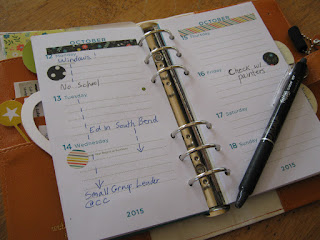 OCTOBER
12 Monday
Windows!
No School
13 Tuesday
Ed in South Bend
14 Wednesday
Small Group Leader
@CC
2015
OCTOBER
15
16 Friday
Check w/
painters
17 Saturday
18 Sunday
2015